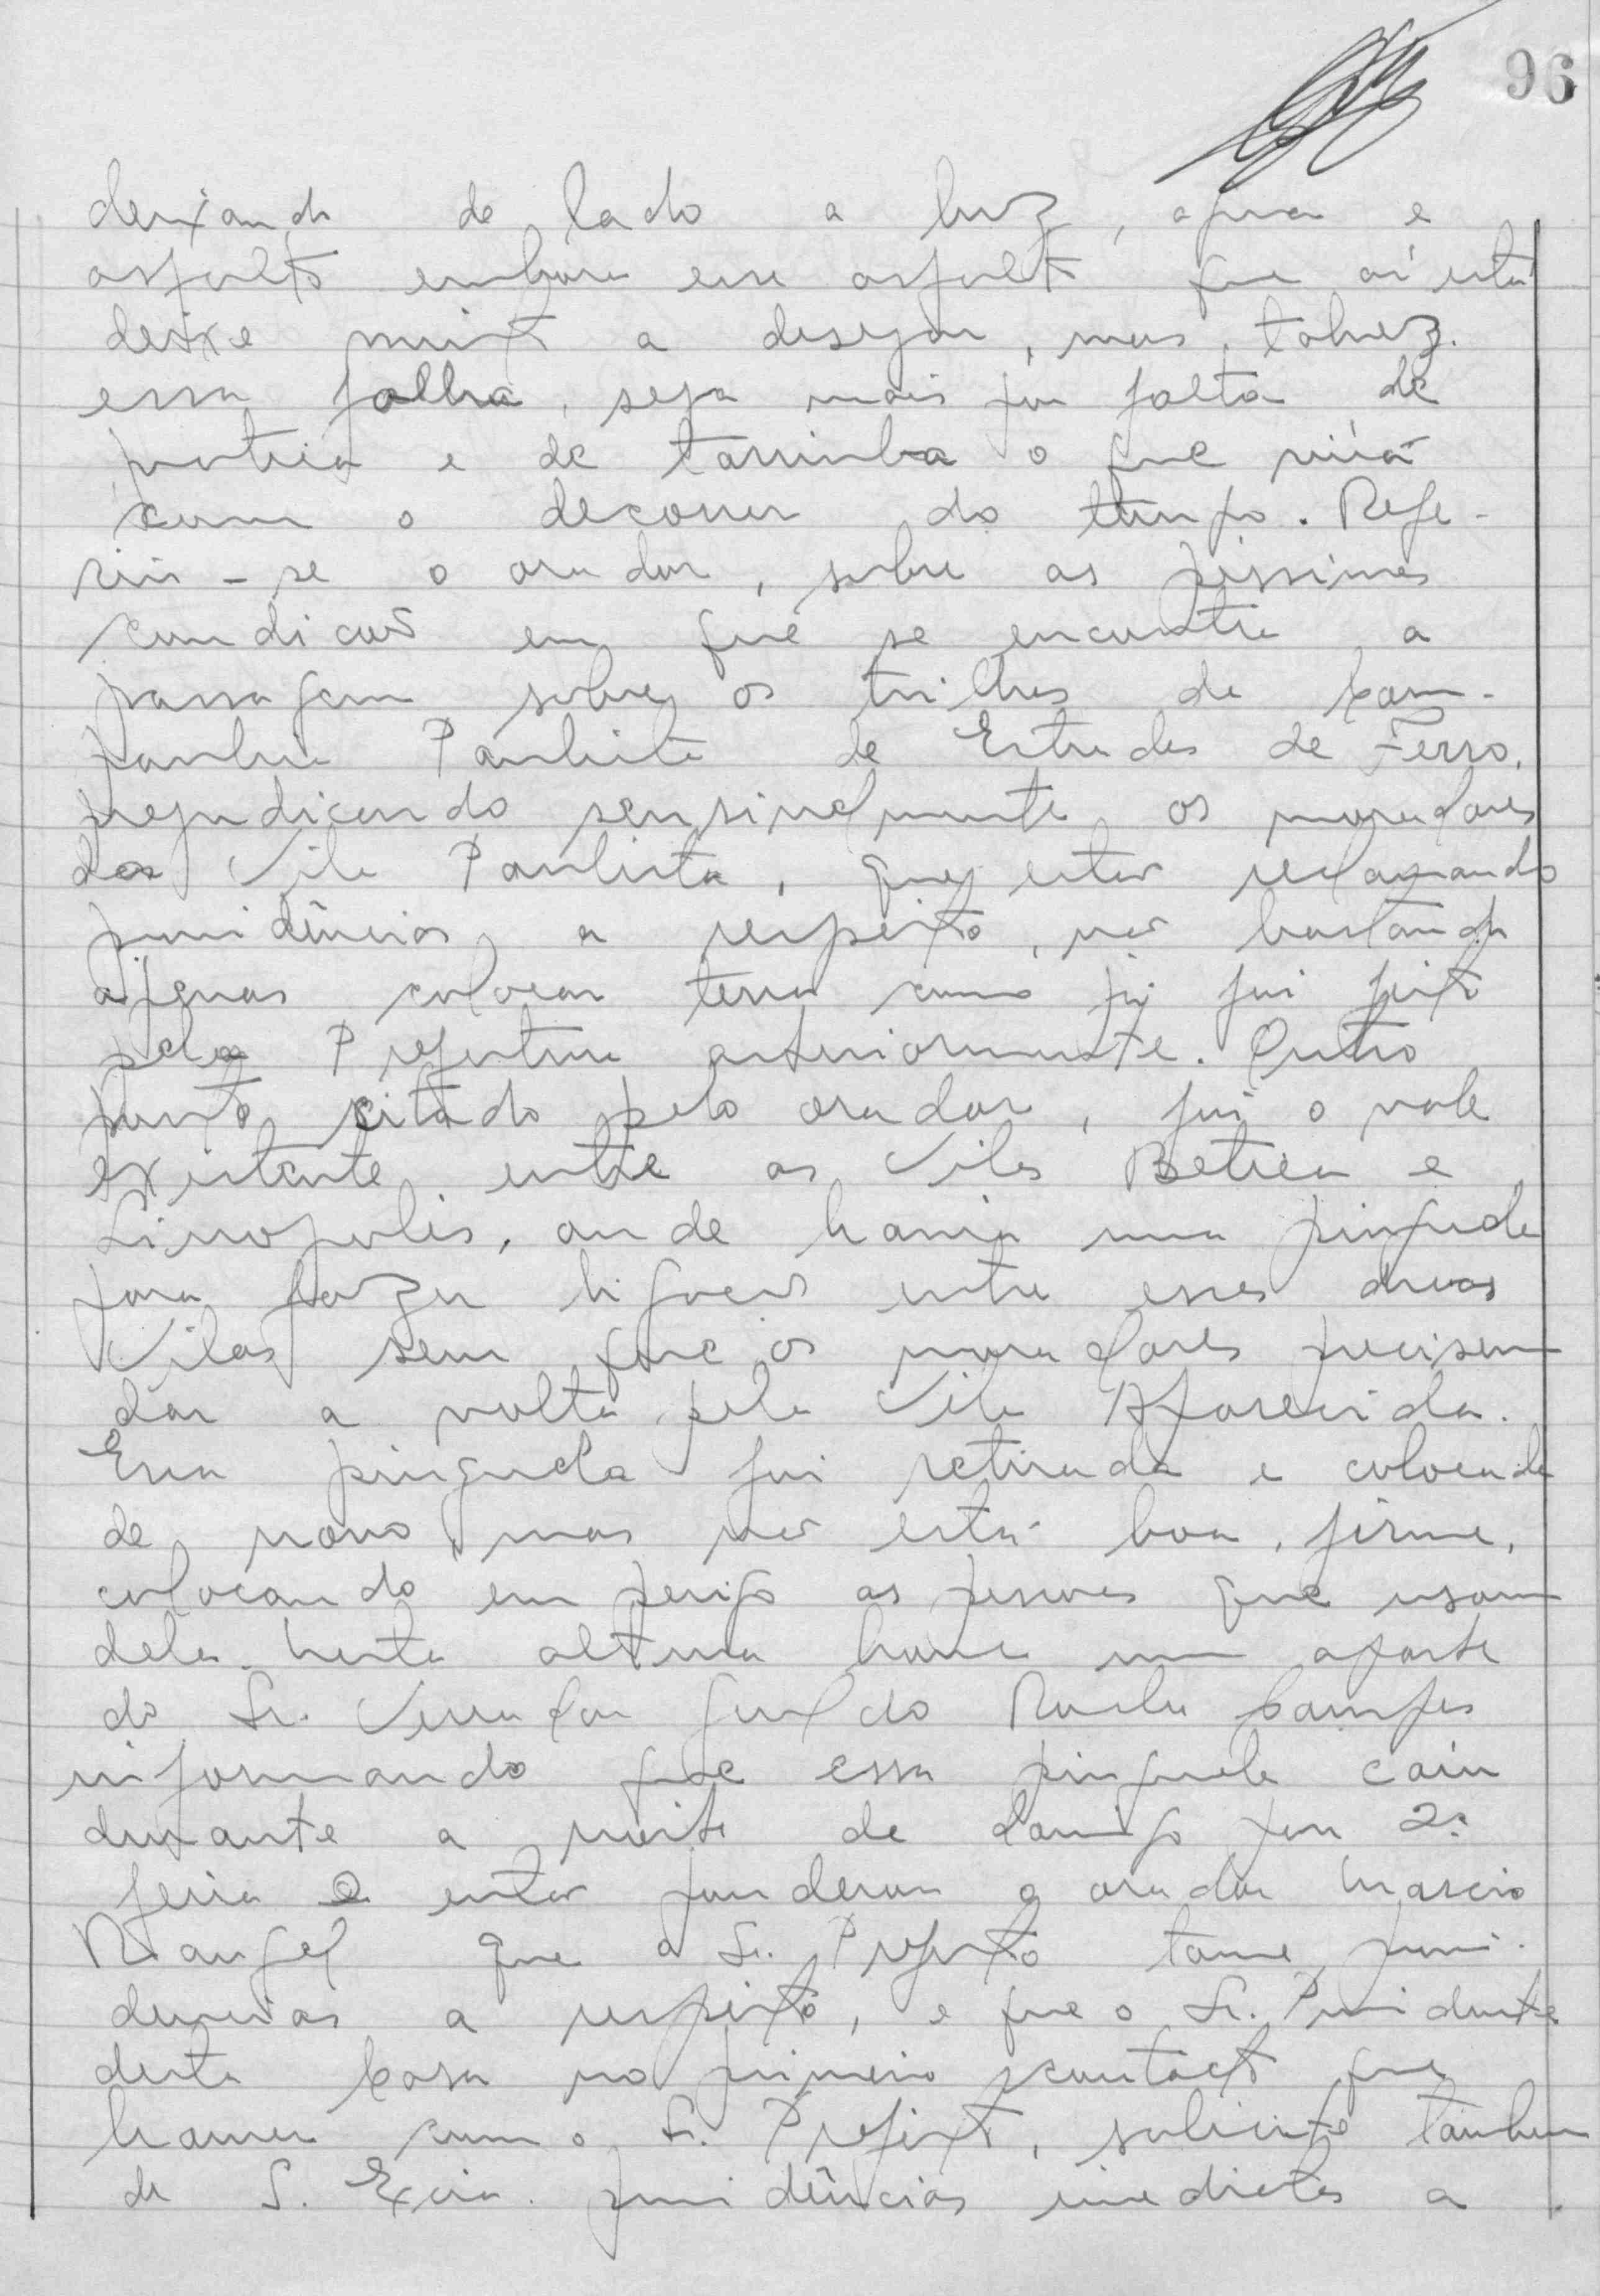 96
deixando de lado a luz, agua e
asfalto embora esse asfalto que aí está
deixe muito a desejar, mas, talvez
essa falha, seja mais por falta de
pratica e de tarimba o que virá
com o decorrer do tempo. Refe-
riu-se o orador, sobre as pessimas
condicões em que se encontra a
passagem sobre os trilhos da Com-
panhia Paulista de Estradas de Ferro,
prejudicando sensivelmente os moradores
da Vila Paulista, que estão reclamando
providências a respeito, não bastando
apenas colocar terra como já foi feito
pela Prefeitura anteriormente. Outro
ponto citado pelo orador, foi o vale
existente entre as Vilas Betica e
Linopolis, onde havia uma pinguela
para fazer ligacão entre essas duas
Vilas sem que os moradores precisem
dar a volta pela Vila Aparecida.
Essa pinguela foi retirada e colocada
de novo, mas não está boa, firme,
colocando em perigo as pessoas que usam
dela. Nesta altura houve um aparte
do Sr. Vereador Geraldo Rocha Campos
informando que essa pinguela caiu
durante a noite de domigo para 2ª
feira e então ponderou o orador Marcio
Rangel que o Sr. Prefeito tome provi-
dencias a respeito, e que o Sr. Presidente
desta Casa no primeiro contacto que
houver com o Sr. Prefeito, solicite também
de S. Excia. providências imediatas a